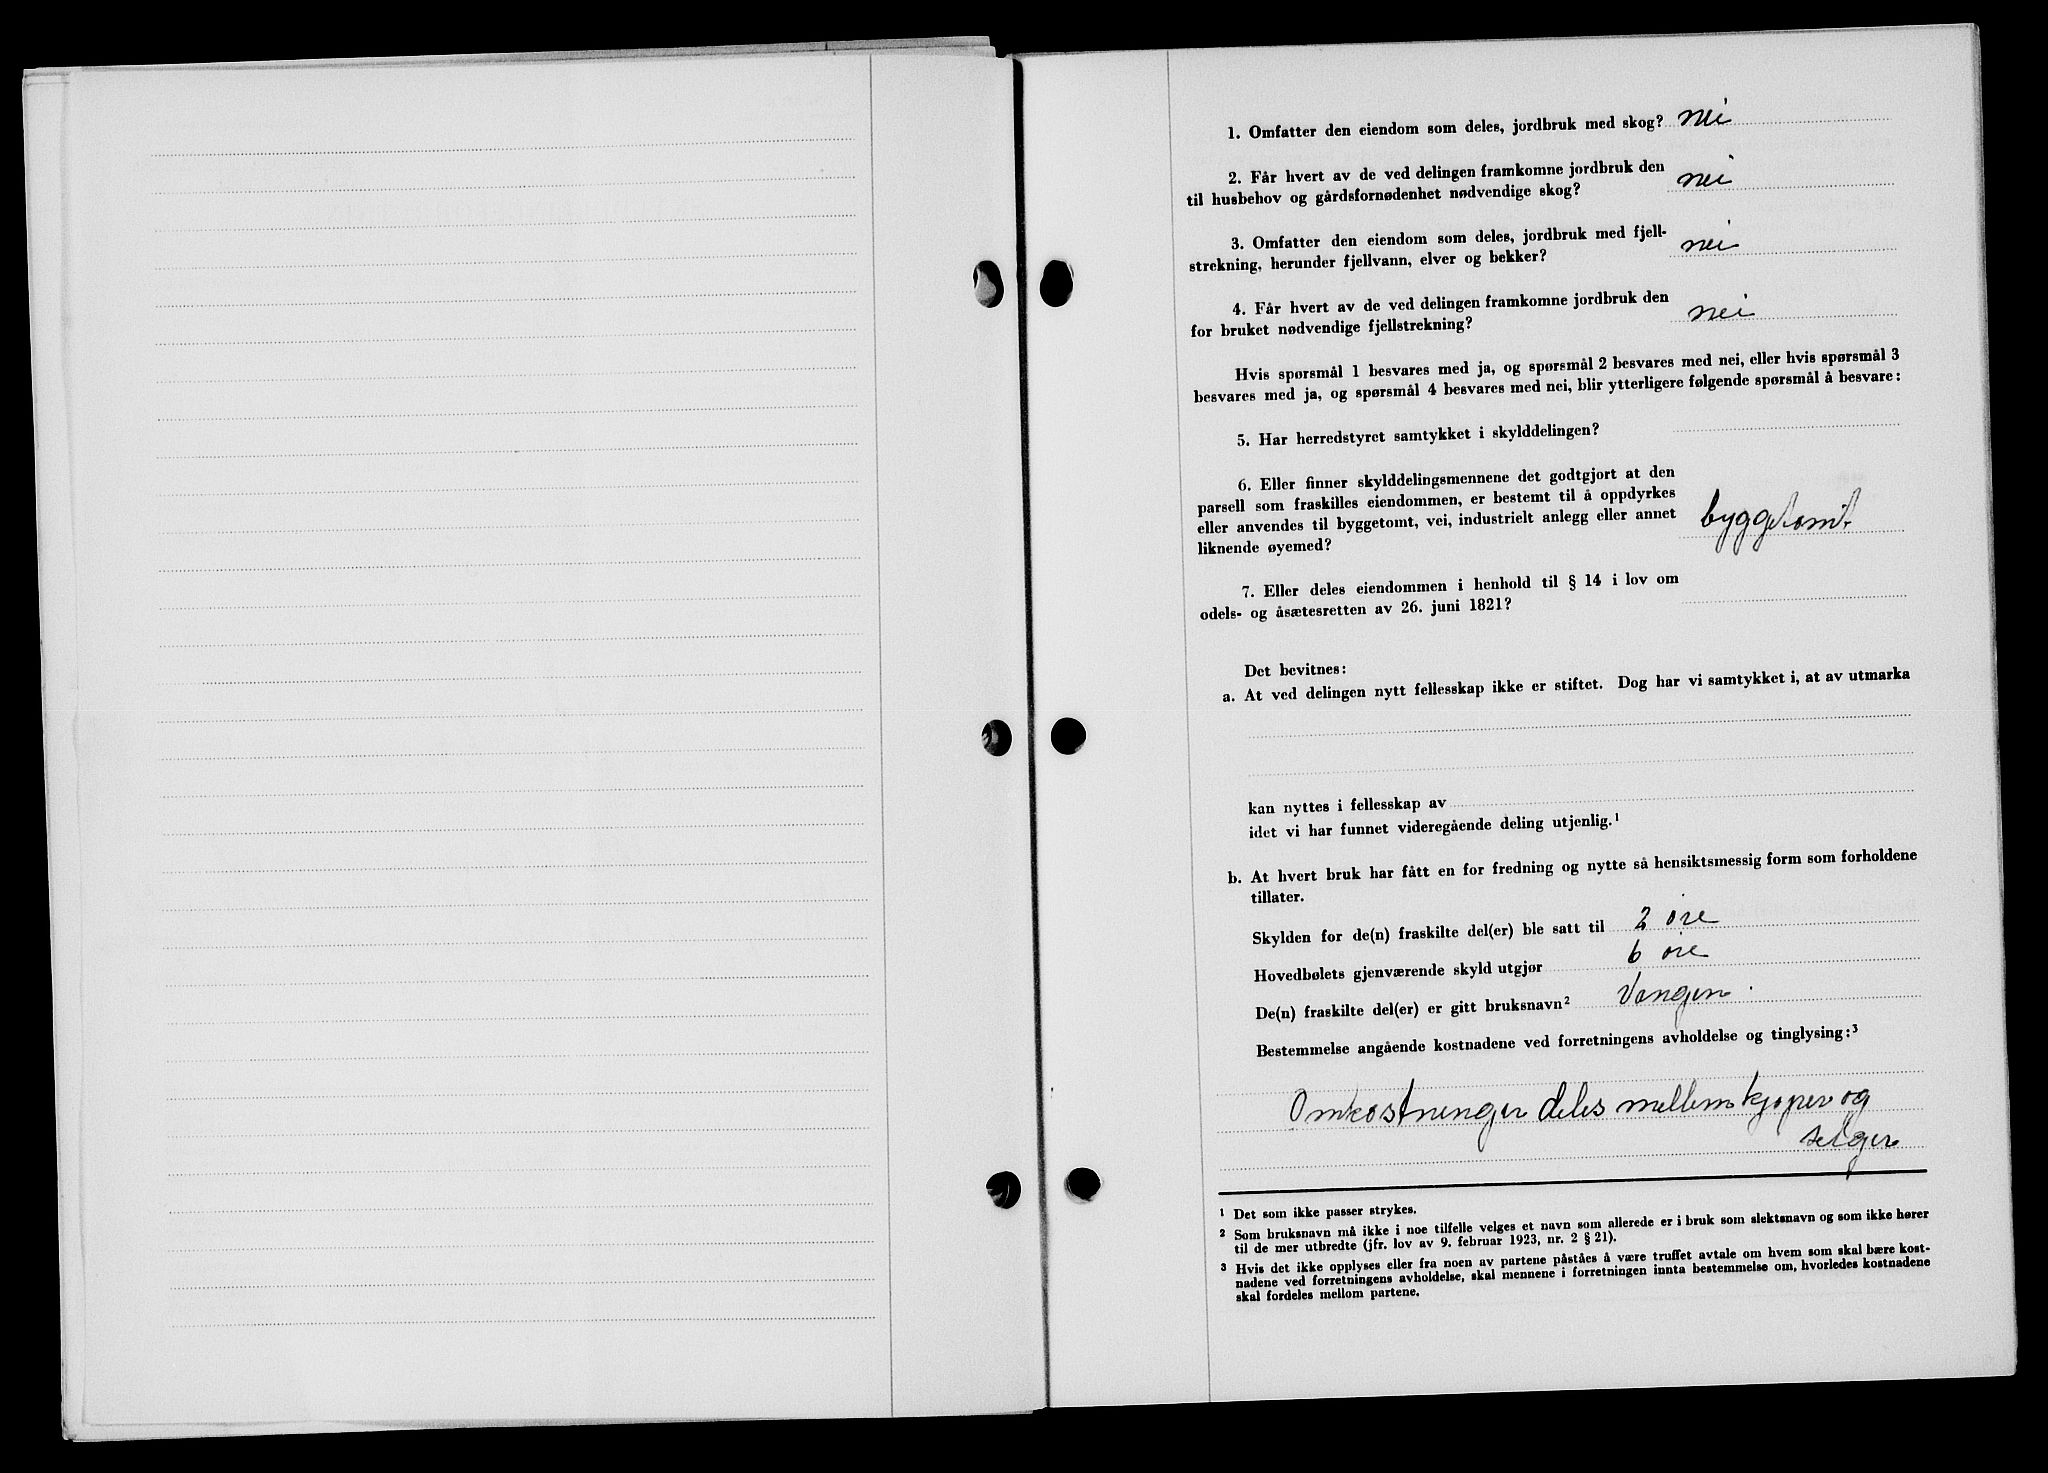 1. Omfatter den eiendom som deles, jordbruk med skog? nei
2. Får hvert av de ved delingen framkomne jordbruk den
til husbehov og gårdsfornødenhet nødvendige skog? nei
3. Omfatter den eiendom som deles, jordbruk med fjell-
strekning, herunder fjellvann, elver og bekker? nei
4. Får hvert av de ved delingen framkomne jordbruk den
for bruket nødvendige fjellstrekning? nei
Hvis spørsmål 1 besvares med ja, og spørsmål 2 besvares med nei, eller hvis spørsmål 3
besvares med ja, og spørsmål 4 besvares med nei, blir ytterligere følgende spørsmål å besvare:
5. Har herredstyret samtykket i skylddelingen?
6. Eller finner skylddelingsmennene det godtgjort at den
parsell som fraskilles eiendommen, er bestemt til å oppdyrkes
eller anvendes til byggetomt, vei, industrielt anlegg eller annet
liknende øyemed? byggetomt.
7. Eller deles eiendommen i henhold til § 14 i lov om
odels- og åsætesretten av 26. juni 1821?
Det bevitnes:
a. At ved delingen nytt fellesskap ikke er stiftet. Dog har vi samtykket i, at av utmarka
kan nyttes i fellesskap av
idet vi har funnet videregående deling utjenlig.¹
b. At hvert bruk har fått en for fredning og nytte så hensiktsmessig form som forholdene
tillater.
Skylden for de(n) fraskilte del(er) ble satt til 2 øre
Hovedbølets gjenværende skyld utgjør 6 øre
De(n) fraskilte del(er) er gitt bruksnavn² Vangen.
Bestemmelse angående kostnadene ved forretningens avholdelse og tinglysing:³
Omkostninger deles mellem kjøper og
selger
¹ Det som ikke passer strykes.
² Som bruksnavn må ikke i noe tilfelle velges et navn som allerede er i bruk som slektsnavn og som ikke hører
til de mer utbredte (jfr. lov av 9. februar 1923, nr. 2 § 21).
³ Hvis det ikke opplyses eller fra noen av partene påståes å være truffet avtale om hvem som skal bære kost-
nadene ved forretningens avholdelse, skal mennene i forretningen innta bestemmelse om, hvorledes kostnadene
skal fordeles mellom partene.